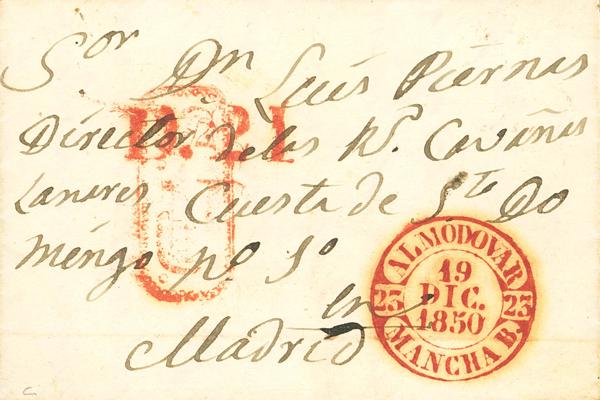 Sor Dn Luis Piernas
Director de las Rs. Cavañas
Lanares, Cuesta de Sto Do
mingo no 5o
en
Madrid
ALMODOVAR
19
DIC.
1850
23 23
MANCHA B.